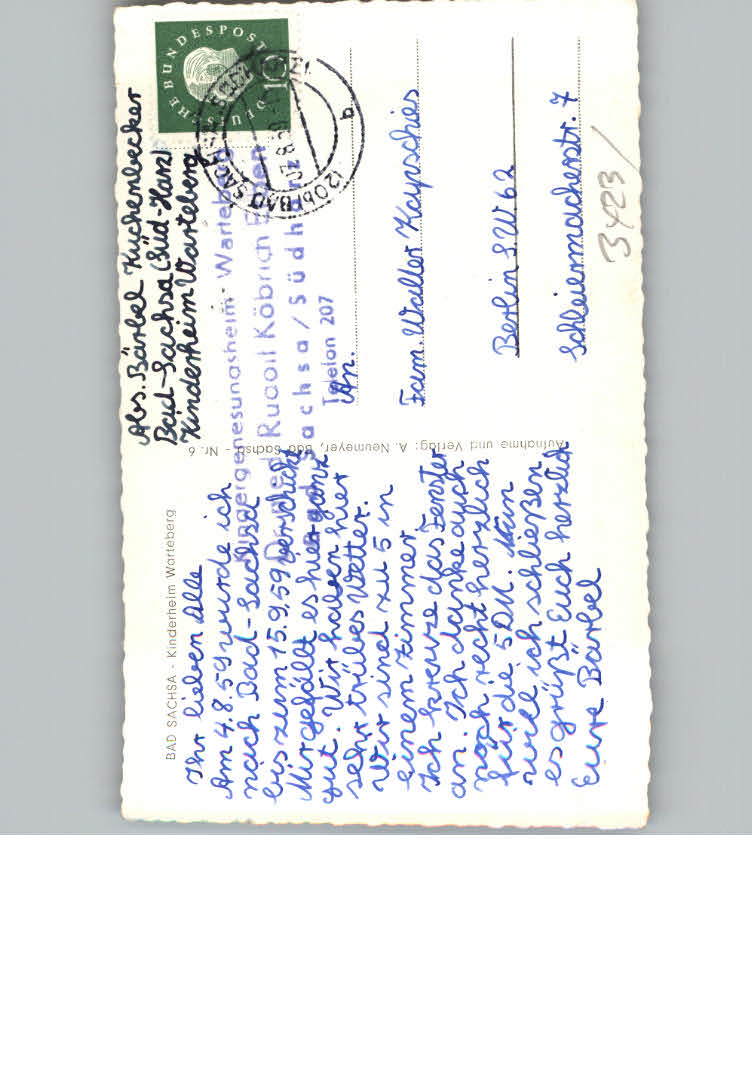 BAD SACHSA - Kinderheim Warteberg
Ihr lieben Alle
Am 4.8.59 wurde ich
nach Bad-Sachsa
bis zum 15.9.59 verschickt
Mir gefällt es hier ganz
gut. Wir haben hier
sehr trübes Wetter.
Wir sind zu 5 in
einem Zimmer
Ich kreuze das Fenster
an. Ich danke auch
noch recht herzlich
für die 5 DM. Nun
will ich schließen
es grüßt Euch herzlich
Eure Bärbel
Aufnahme und Verlag: A. Neumeyer, Bad Sachsa - Nr. 6
Abs. Bärbel Kuchenbecker
Bad-Sachsa (Süd-Harz)
Kinderheim Warteberg
Kindergenesungsheim - Warteberg
Dr. med. Rudolf Köbrich
Bad Sachsa / Südharz
Telefon 207
DEUTSCHE BUNDESPOST
10
(20b) BAD SACHSA
b
An.
Fam. Walter Kapschies
Berlin S.W. 62
Schleiermacherstr. 7
3423/